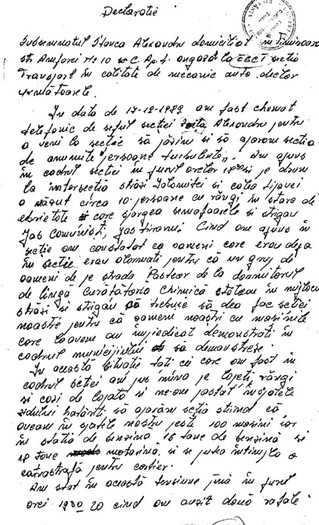 Declarație
Subsemnatul Stanca Alexandru domiciliat în Timișoara
str. Amforei nr. 10 sc. C. Ap. 4. angajat la ECCT secția
Transport în calitate de mecanic auto declar
următoarele.
În data de 17-12-1989 am fost chemat
telefonic de șeful secției Alexandru pentru
a veni la secție să păzim și să apăram secția
de anumite "persoane turbulente". Am ajuns
în cadrul secției în jurul orelor și pe drum
la intersecția străzii Ialomiței și calea Lipovei
a văzut circa 10 persoane cu răngi în stare de
ebrietate care spărgea semafoarele și strigau
Jos Comuniștii, Jos tiranul. Cînd am ajuns în
secție am constatat că oamenii care erau deja
în secție erau alarmați pentru că un grup de
oameni de pe strada Pasteur de la dormitorul
de lîngă Curățătoria Chimică stăteau în mijlocul
străzii și strigau că trebuie să dea foc secției
noastre pentru că oamenii noștri cu mașinile
care le aveau au împiedicat demonstrații în
cadrul municipiului să demonstreze.
În această situație toți cei care am fost în
cadrul secției am pus mîna pe lopeți, răngi
și cozi de lopată și ne-am postat în spatele
zidului hotărîți să apărăm secția știind că
aveam în spatele nostru peste 100 mașini iar
în stația de benzină 16 tone de benzină și
tone motorină, și se putea întîmpla o
catastrofă pentru cartier.
Am stat în această tensiune pînă în jurul
orei 1930 20 cînd am auzit două rafale